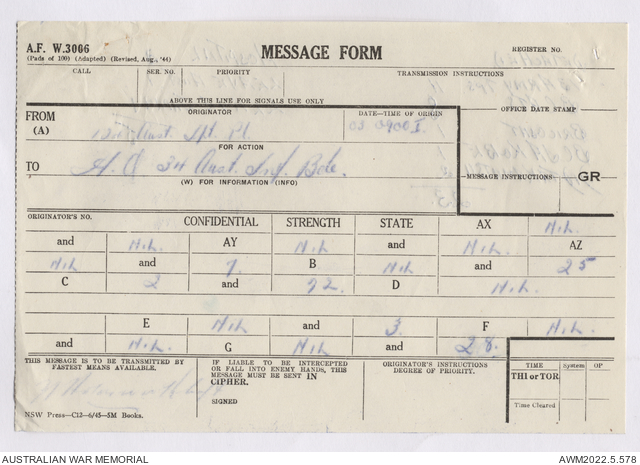 A.F. W.3006
(Pads of 100) (Adapted) (Revised, Aug., '44)
MESSAGE FORM
REGISTER NO.
CALL SER. NO. PRIORITY TRANSMISSION INSTRUCTIONS
ABOVE THIS LINE FOR SIGNALS USE ONLY
OFFICE DATE STAMP
FROM ORIGINATOR DATE—TIME OF ORIGIN
(A) Aust. Pl. 03 0900 I
FOR ACTION
TO H.Q 34 Aust. Inf. Bde.
(W) FOR INFORMATION (INFO)
MESSAGE INSTRUCTIONS GR
ORIGINATOR'S NO. CONFIDENTIAL STRENGTH STATE AX Nil
and Nil AY Nil and Nil AZ
Nil and 7. B Nil and 25
C 2 and 72. D Nil.
E Nil and 3. F Nil.
and Nil. G Nil and 28.
THIS MESSAGE IS TO BE TRANSMITTED BY
FASTEST MEANS AVAILABLE.
IF LIABLE TO BE INTERCEPTED
OR FALL INTO ENEMY HANDS, THIS
MESSAGE MUST BE SENT IN
CIPHER.
SIGNED
ORIGINATOR'S INSTRUCTIONS
DEGREE OF PRIORITY.
TIME System OP
THI or TOR
Time Cleared
NSW Press—C12—6/45—5M Books.
AUSTRALIAN WAR MEMORIAL AWM2022.5.578